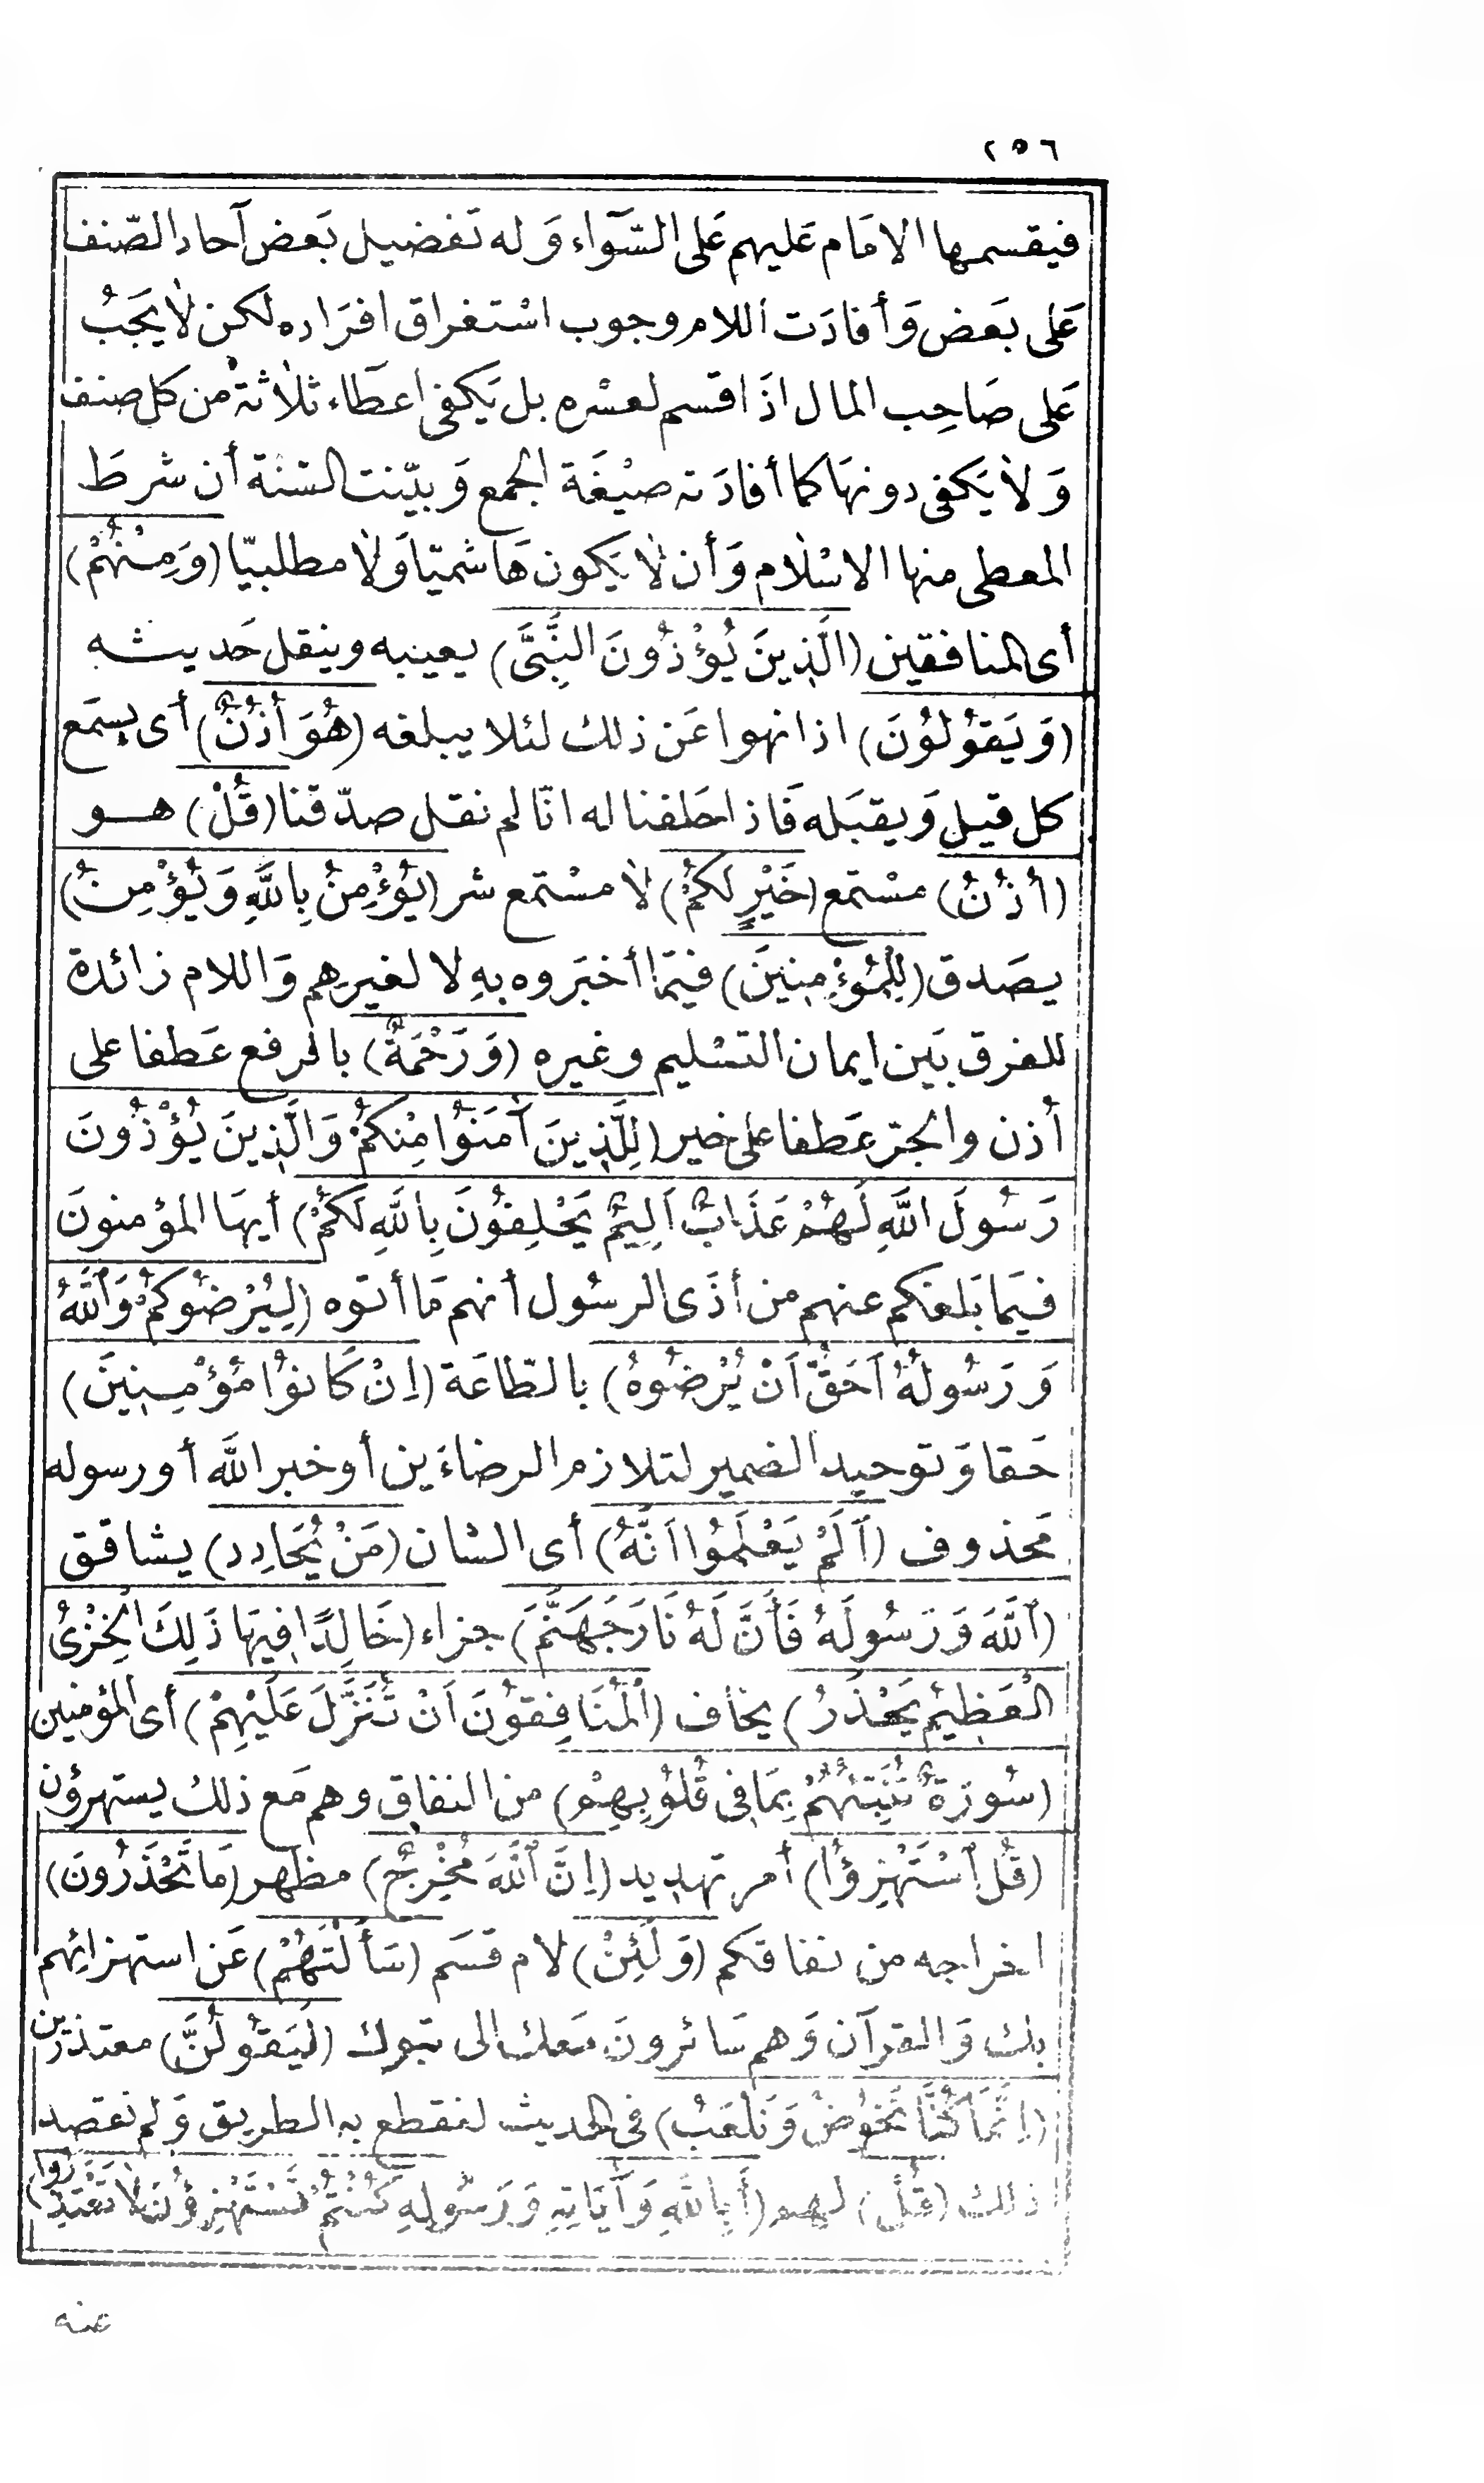 ٢٥٦
فيقسمها الامَام عَليهم عَلى السَّوَآء وَ له تَفضيل بَعض آحاد الصّنف
عَلى بَعض وَأفادَت اللام وجوب اسْتغراق افرَاده لكن لا يَجَبُ
عَلى صَاحِب المال اذَا قسم لعسْره بل يَكفى اعطَاء ثلاثة من كل صنف
وَ لا يَكفى دونهَا كما أفادَته صيْغَة الجمع وَ بيّنت السّنة أن شرطَ
المعطى منها الاسْلام وَأن لا يَكون هَاشميّا وَلا مطلبيّا (وَمِنْهُمْ)
أى المنافقين (الَّذِينَ يُؤْذُونَ النَّبِىَّ) بعيبه وينقل حَديثه
(وَ يَقُولُونَ) اذا نهوا عَن ذلك لئلا يبلغه (هُوَ أُذُنٌ) أى يسمَع
كل قيل وَ يقبَله فَاذا حَلفنا له انّا لم نقل صدّقنا (قُلْ) هو
(اُذُنُ) مسْتمع (خَيْرٍ لَكُمْ) لا مسْتمع شر (يُؤْمِنُ بِاللَّهِ وَ يُؤْمِنُ)
يصَدق (لِلْمُؤْمِنِينَ) فيمَا أخبَروه بهِ لا لغيرهم وَاللام زائدة
للفرق بَين ايمان التسْليم وغيره (وَ رَحْمَةٌ) بالرفع عَطفا على
أُذن والجرّ عَطفا على خير (لِلَّذِينَ آمَنُوا مِنْكُمْ وَالَّذِينَ يُؤْذُونَ
رَسُولَ اللَّهِ لَهُمْ عَذَابٌ اَلِيمٌ يَحْلِفُونَ بِاللَّهِ لَكُمْ) أيهَا المؤمنونَ
فيمَا بَلغكم عنهم من أذَى الرسُول أنهم مَا أتوه (لِيُرْضُوكُمْ وَاللَّهُ
وَ رَسُولُهُ اَحَقُّ اَنْ يُرْضُوهُ) بالطّاعَة (اِنْ كَانُوا مُؤْمِنِينَ)
حَقا وَ توحيد الضمير لتلازم الرضاءَين أو خبر اللَّه أو رسوله
مَحذوف (اَلَمْ يَعْلَمُوا اَنَّهُ) أى الشان (مَنْ يُحَادِدِ) يشاقق
(اللَّهَ وَ رَسُولَهُ فَأَنَّ لَهُ نَارَ جَهَنَّمَ) جزاء (خَالِدًا فِيهَا ذَلِكَ الْخِزْىُ
الْعَظِيمُ يَحْذَرُ) يخاف (الْمُنَافِقُونَ اَنْ تُنَزَّلَ عَلَيْهِمْ) أى المؤمنين
(سُورَةٌ تُنَبِّئُهُمْ بِمَا فِى قُلُوبِهِمْ) من النفاق وهم مَع ذلك يستهزؤن
(قُلِ اسْتَهْزِؤُا) أمر تهديد (اِنَّ اللَّهَ مُخْرِجٌ) مظهر (مَا تَحْذَرُونَ)
اخراجه من نفاقكم (وَ لَئِنْ) لام قسَم (سَأَلْتَهُمْ) عَن استهزائهم
بك وَ القرآن وَ هم سَائرونَ معَك الى تبوك (لَيَقُولُنَّ) معتذرين
(اِنَّمَا كُنَّا نَخُوضُ وَ نَلْعَبُ) فى الحديث لنقطع به الطريق وَ لم نقصد
ذلك (قُلْ) لهم (أَبِاللَّهِ وَ آيَاتِهِ وَ رَسُولِهِ كُنْتُمْ تَسْتَهْزِؤُنَ لَا تَعْتَذِرُوا)
عنه